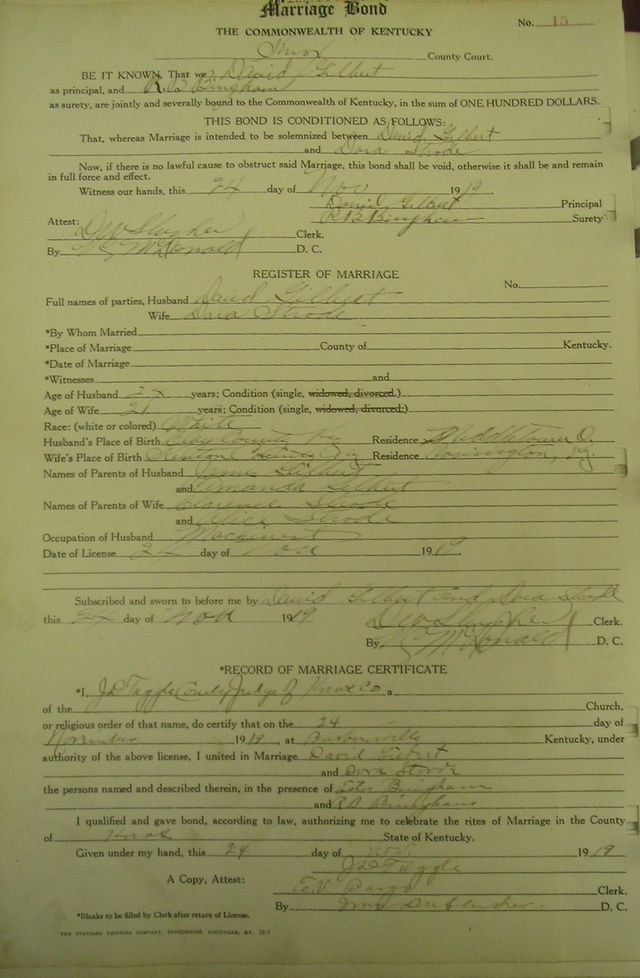 Marriage Bond
No. 15
THE COMMONWEALTH OF KENTUCKY
Knox County Court.
BE IT KNOWN, That we David Gilbert
as principal, and R. B. Bingham
as surety, are jointly and severally bound to the Commonwealth of Kentucky, in the sum of ONE HUNDRED DOLLARS.
THIS BOND IS CONDITIONED AS FOLLOWS:
That, whereas Marriage is intended to be solemnized between David Gilbert
and Dora Strode
Now, if there is no lawful cause to obstruct said Marriage, this bond shall be void, otherwise it shall be and remain
in full force and effect.
Witness our hands, this 24 day of Nov 1919
David Gilbert Principal
R B Bingham Surety
Attest:
D W Slusher Clerk.
By McDonald D. C.
REGISTER OF MARRIAGE
No.
Full names of parties, Husband David Gilbert
Wife Dora Strode
*By Whom Married
*Place of Marriage County of Kentucky.
*Date of Marriage
*Witnesses and
Age of Husband years; Condition (single, widowed, divorced.)
Age of Wife 21 years; Condition (single, widowed, divorced;)
Race: (white or colored) White
Husband's Place of Birth Clay County Ky Residence Middletown O.
Wife's Place of Birth Residence Ky.
Names of Parents of Husband James Gilbert
and Amanda Gilbert
Names of Parents of Wife Clarence Strode
and Alice Strode
Occupation of Husband Machinist
Date of License day of Nov 1919.
Subscribed and sworn to before me by David Gilbert and Dora Strode
this day of Nov 1919 D W Slusher Clerk.
By McDonald D. C.
*RECORD OF MARRIAGE CERTIFICATE
*I, J D Tuggle County Judge of Knox Co a
of the Church,
or religious order of that name, do certify that on the 24 day of
November 1919, at Barbourville Kentucky, under
authority of the above license, I united in Marriage David Gilbert
and Dora Strode
the persons named and described therein, in the presence of Bingham
and R B Bingham
I qualified and gave bond, according to law, authorizing me to celebrate the rites of Marriage in the County
of Knox State of Kentucky.
Given under my hand, this 24 day of Nov. 1919
J D Tuggle
A Copy, Attest: Clerk.
By D. C.
*Blanks to be filled by Clerk after return of License.
THE STANDARD PRINTING COMPANY, Incorporated, LOUISVILLE, KY.